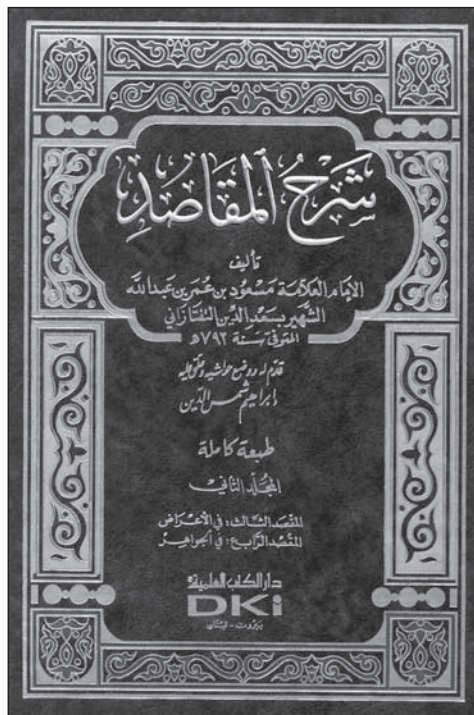 شَرْحُ المَقَاصِدِ
تأليف
الإمام العلامة مسعود بن عمر بن عبد الله
الشهير بسعد الدين التفتازاني
المتوفى سنة ٧٩٣ هـ
قدم له ووضع حواشيه وعلق عليه
إبراهيم شمس الدين
طبعة كاملة
المجلد الثاني
المقصد الثالث: في الأعراض
المقصد الرابع: في الجواهر
دار الكتب العلمية
DKi
بيروت - لبنان